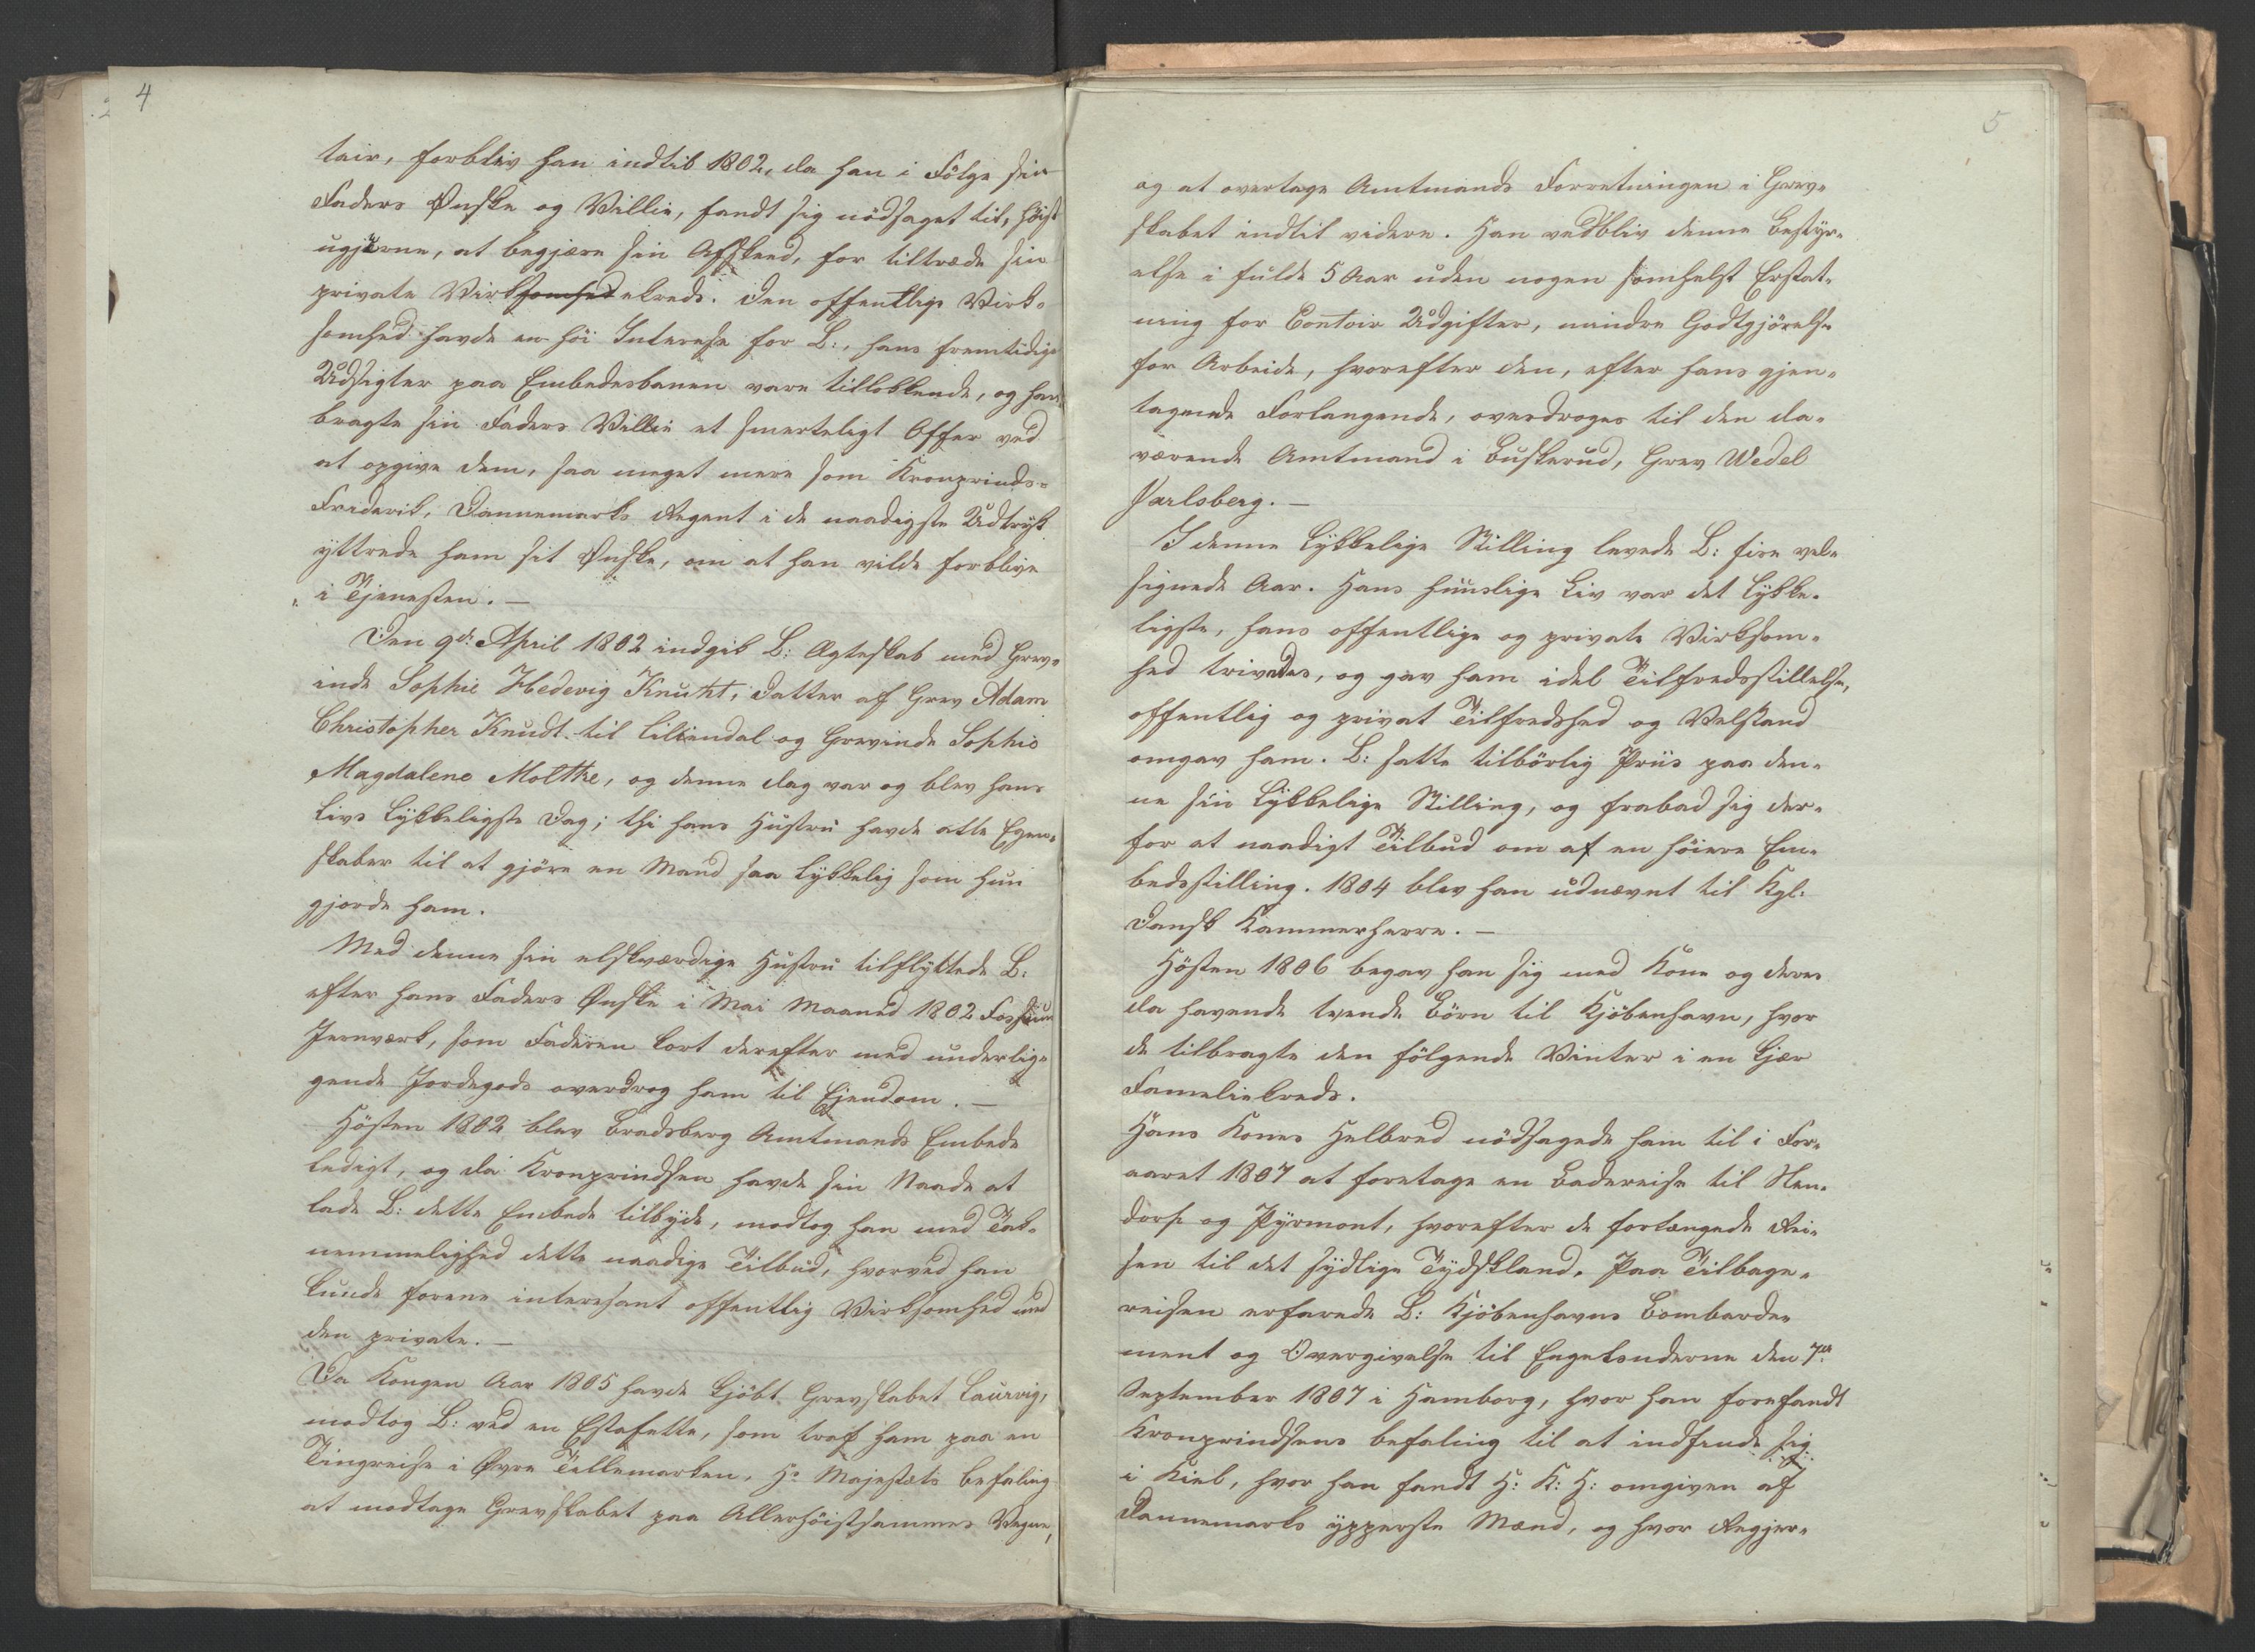 4
tair, forblev han indtil 1802, da han i Følge sin
Faders Ønske og Villie, fandt sig nödsaget til, höist
ugjerne, at begjære sin Afskeed, for tiltræde sin
private Virksomhedskreds. Den offentlige Virk-
somhed havde en höi Interesse for L:, hans fremtidige
Udsigter paa Embedesbanen vare tillokkende, og han
bragte sin Faders Villie et smerteligt Offer ved
at opgive dem, saa meget mere som Kronprinds-
Frederik, Dannemarks Regent i de naadigste Udtryk
yttrede ham sit Ønske, om at han vilde forblive
i Tjenesten. —
Den 9de April 1802 indgik L: Ægteskab med Grev-
inde Sophie Hedevig Knuht, Datter af Grev Adam
Christopher Knudt til Liliendal og Grevinde Sophie
Magdalene Moltke, og denne Dag var og blev hans
Livs lykkeligste Dag; thi hans Hustru havde alle Egen-
skaber til at gjöre en Mand saa lykkelig som hun
gjorde ham.
Med denne sin elskværdige Hustru tilflyttede L:
efter hans Faders Ønske i Mai Maaned 1802 Fossum
Jernværk, som Faderen kort derefter med underlig-
gende Jordegods overdrog ham til Eiendom. —
Hösten 1802 blev Bradsberg Amtmands Embede
ledigt, og da Kronprindsen havde sin Naade at
lade L: dette Embede tilbyde, modtog han med Tak-
nemmelighed dette naadige Tilbud, hvorved han
kunde forene interesant offentlig Virksomhed med
den private. —
Da Kongen Aar 1805 havde kjöbt Grevskabet Laurvig,
modtog L: ved en Estafette, som traf ham paa en
Tingreise i Øvre Tellemarken, Hs Majestæts Befaling
at modtage Grevskabet paa Allerhöistsammes Vegne,
5
og at overtage Amtmands Forretningen i Grev-
skabet indtil videre. Han vedblev denne Bestyr-
else i fulde 5 Aar uden nogen somhelst Erstat-
ning for Contoir Udgifter, mindre Godtgjörelse
for Arbeide, hvorefter den, efter hans gjen-
tagende Forlangende, overdroges til den da-
værende Amtmand i Buskerud, Grev Wedel
Jarlsberg. —
I denne lykkelige Stilling levede L: fire vel-
signede Aar. Hans huuslige Liv var det lykke-
ligste, hans offentlige og private Virksom-
hed trivedes, og gav ham idel Tilfredsstillelse,
offentlig og privat Tilfredshed og Velstand
omgav ham. L: satte tilbörlig Priis paa den-
ne sin lykkelige Stilling, og frabad sig der-
for at naadigt Tilbud om af en höiere Em-
bedsstilling. 1804 blev han udnævnt til Kgl:
Dansk Kammerherre. —
Hösten 1806 begav han sig med Kone og deres
da havende tvende Börn til Kjöbenhavn, hvor
de tilbragte den fölgende Vinter i en kjær
Familiekreds.
Hans Kones Helbred nödsagede ham til i For-
aaret 1807 at foretage en Badereise til Nen-
dorf og Pyrmont, hvorefter de forlængede Rei-
sen til det sydlige Tydskland. Paa Tilbage-
reisen erfarede L: Kjöbenhavns Bombarde-
ment og Overgivelse til Engelænderne den 7de
September 1807 i Hamborg, hvor han forefandt
Kronprindsens befaling til at indfinde sig
i Kiel, hvor han fandt H: K: H: omgiven af
Dannemarks ypperste Mænd, og hvor Regjer-